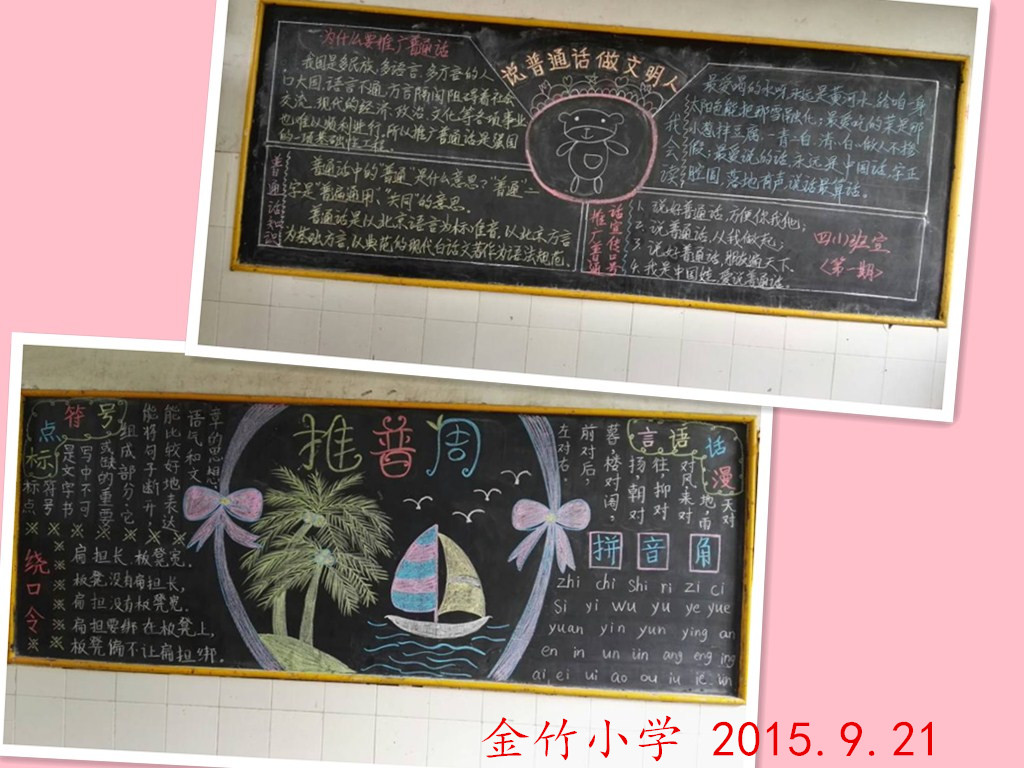 为什么要推广普通话
我国是多民族、多语言、多方言的人
口大国,语言不通,方言隔阂阻碍着社会
交流,现代的经济、政治、文化等各项事业
也难以顺利进行。所以推广普通话是强国
的一项基础性工程。
普通话知识
普通话中的“普通”是什么意思?“普通”二
字是“普遍通用”、“共同”的意思。
普通话是以北京语言为标准音,以北京方言
为基础方言,以典范的现代白话文著作为语法规范。
说普通话做文明人
最爱喝的水呀永远是黄河水,给咱一身
太阳色能把那雪融化;最爱吃的菜是那
小葱拌豆腐,一青二白,清白做人不掺
假;最爱说的话永远是中国话,字正
腔圆,落地有声,说话最算话。
推广普通话宣传口号
1、说好普通话,方便你我他;
2、说普通话,从我做起;
3、说好普通话,朋友遍天下。
4、我是中国娃,爱说普通话。
四(1)班宣
《第一期》
推普周
标点符号
标点符号
是文字书
写中不可
或缺的重要
组成部分,它
能将句子断开,
能比较好地表达
语气和文
章的思想
绕口令
扁担长,板凳宽,
板凳没有扁担长,
扁担没有板凳宽。
扁担要绑在板凳上,
板凳偏不让扁担绑。
漫话语言
天对
地,雨
对风,来对
往,抑对
扬,朝对
暮,楼对阁,
前对后,
左对右。
拼音角
zhi chi shi ri zi ci
si yi wu yu ye yue
yuan yin yun ying an
en in un ün ang eng ing
ai ei ui ao ou iu ie ün
金竹小学 2015.9.21